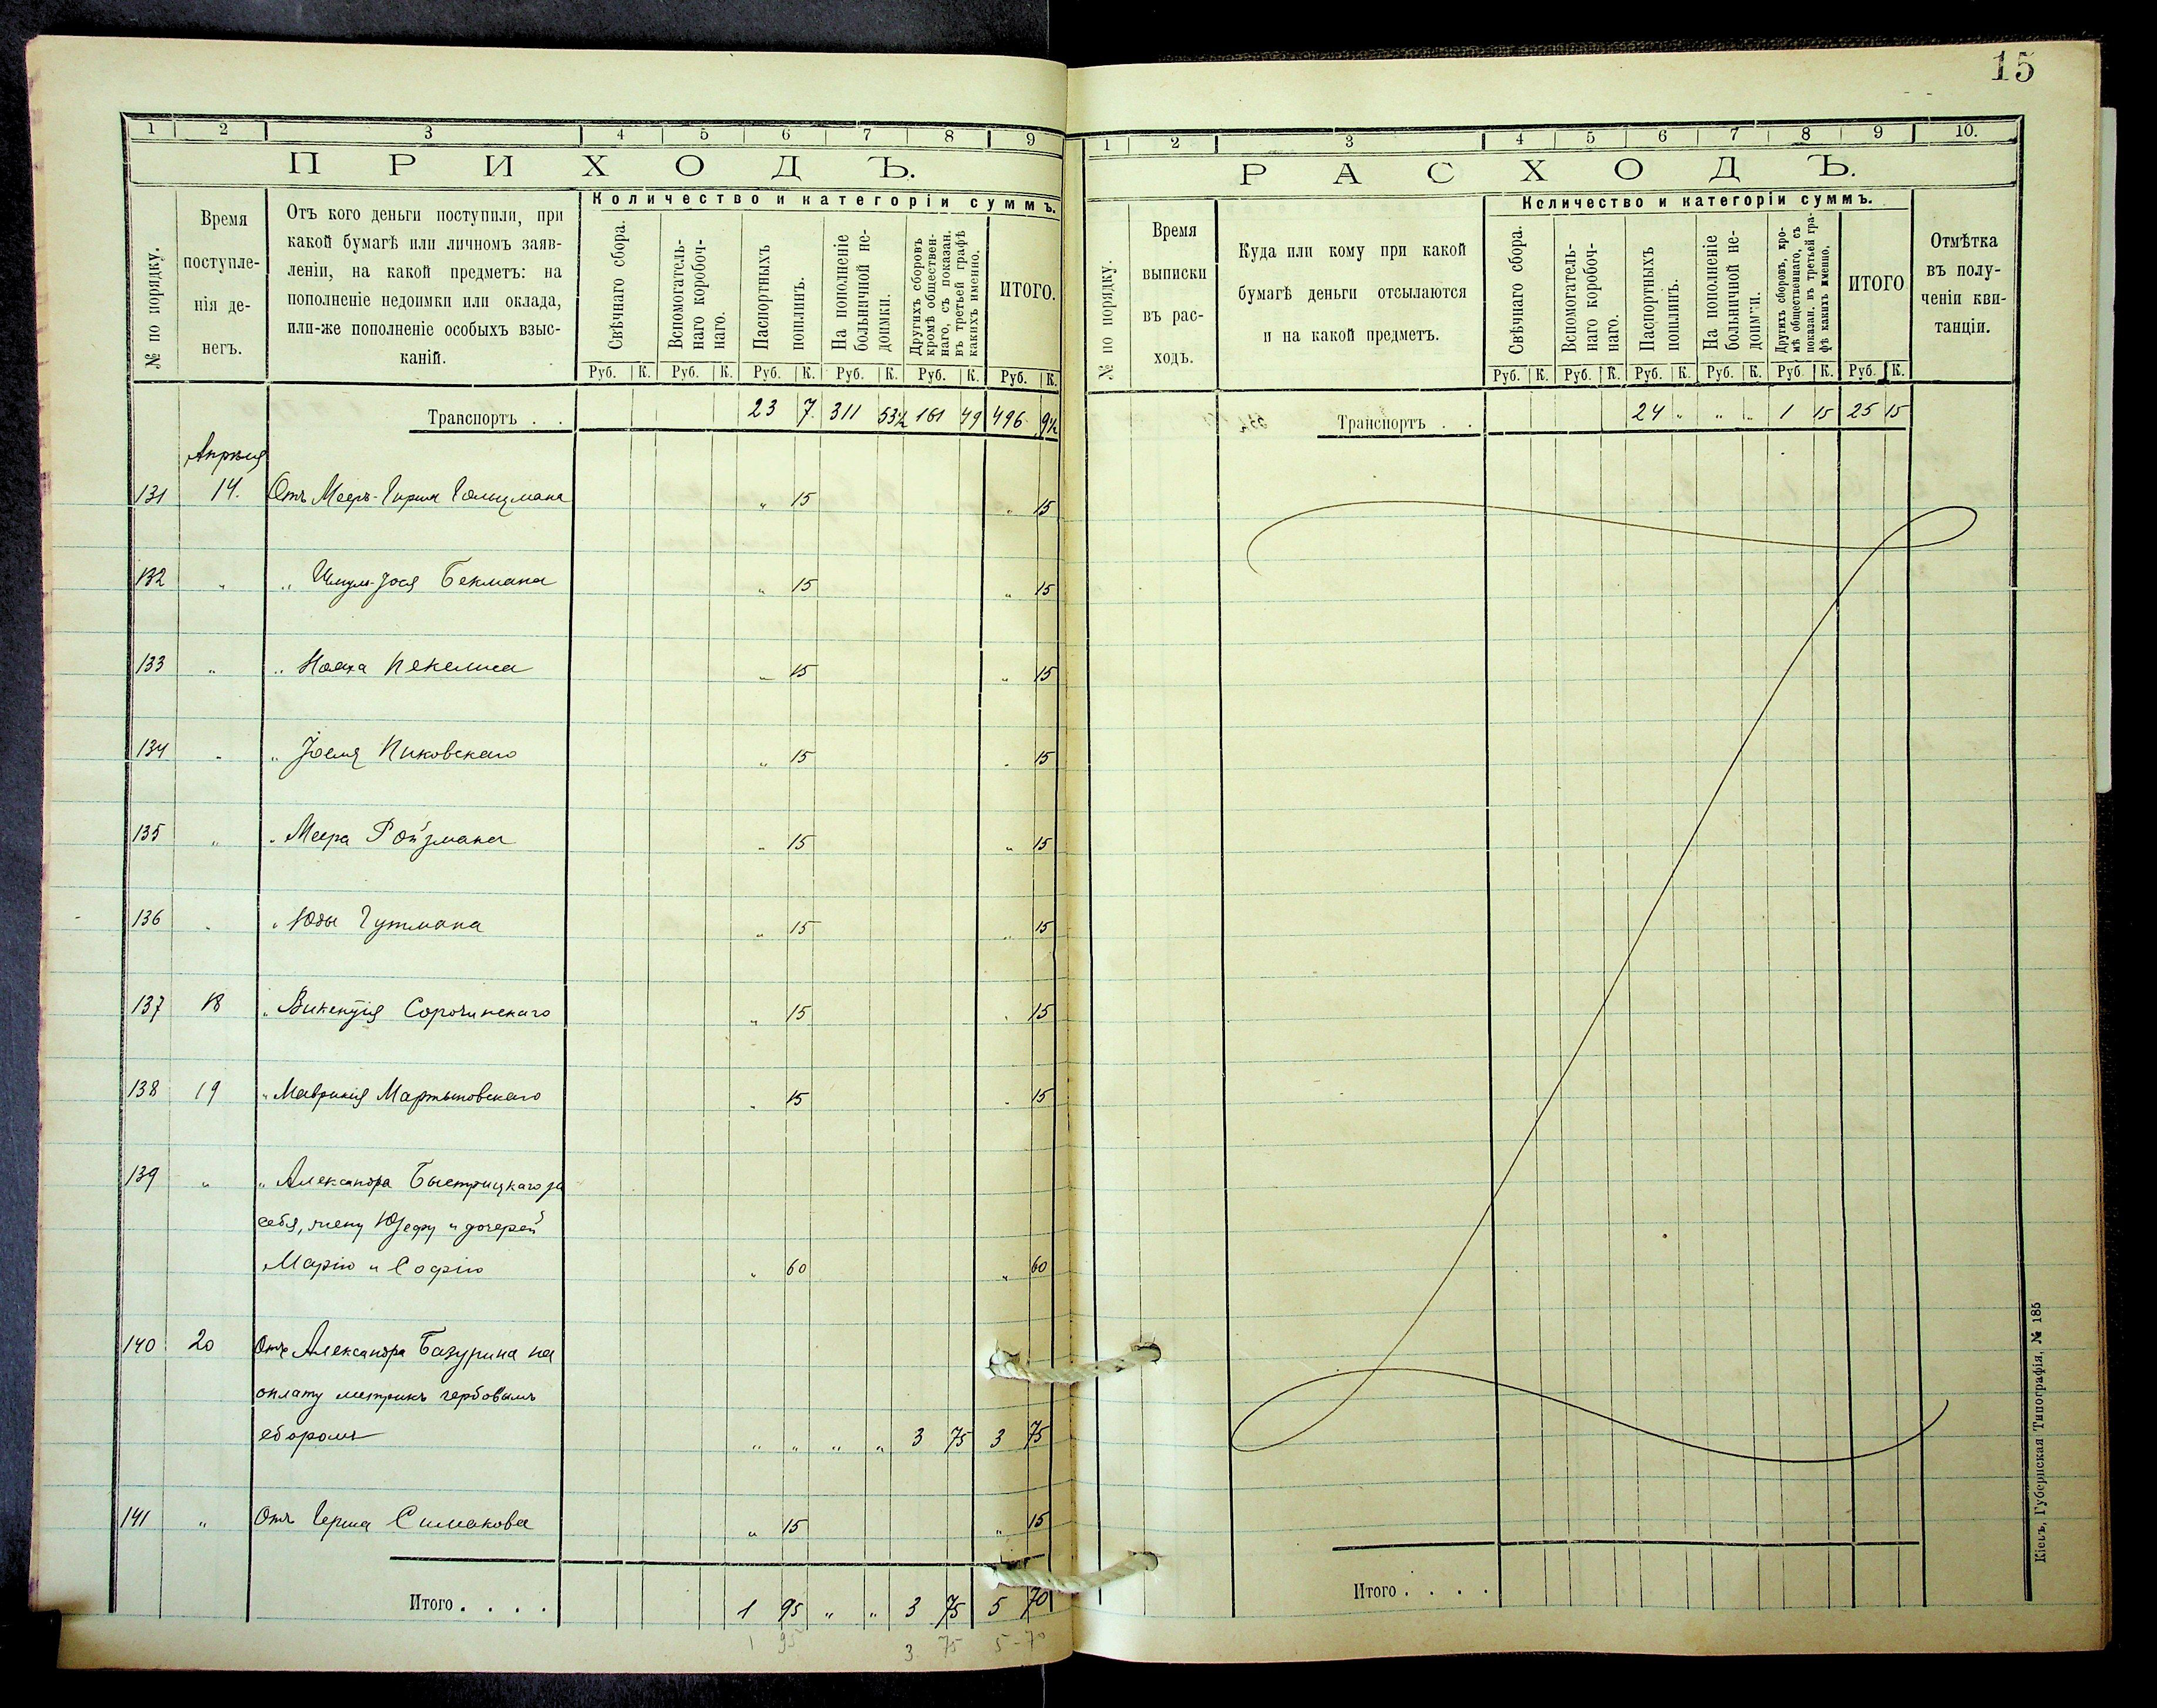 15
1 2 3 4 5 6 7 8 9
ПРИХОДЪ.
№ по порядку.
Время
поступле-
нія де-
негъ.
Отъ кого деньги поступили, при
какой бумагѣ или личномъ заяв-
леніи, на какой предметъ: на
пополненіе недоимки или оклада,
или-же пополненіе особыхъ взыс-
каній.
Количество и категоріи суммъ.
Свѣчнаго сбора.
Вспомогатель-
наго коробоч-
наго.
Паспортныхъ
пошлинъ.
На пополненіе
больничной не-
доимки.
Другихъ сборовъ
кромѣ обществен-
наго, съ показан.
въ третьей графѣ
какихъ именно.
ИТОГО.
Руб. К. Руб. К. Руб. К. Руб. К. Руб. К. Руб. К.
Транспортъ . . 23 7 311 53½ 161 49 496 9½
Апрѣля
131 14. Отъ Меера-Герша Гольцмана " 15 " 15
132 " " Шмуля-Іося Бекмана " 15 " 15
133 " " Ноаха Пекелиса " 15 " 15
134 " " Іоеля Пиковскаго " 15 " 15
135 " " Меера Ройзмана " 15 " 15
136 " " Юды Гутмана " 15 " 15
137 18 " Викентія Сорочинскаго " 15 " 15
138 19 " Маврикія Мартыновскаго " 15 " 15
139 " " Александра Быстрицкаго за
себя, жену Юзефу и дочерей
Марію и Софію " 60 " 60
140 20 Отъ Александра Базурина на
оплату метрикъ гербовымъ
сборомъ " " " " 3 75 3 75
141 " Отъ Герша Симакова " 15 " 15
Итого . . . . 1 95 " " 3 75 5 70
1 95 3 75 5-70
1 2 3 4 5 6 7 8 9 10.
РАСХОДЪ.
№ по порядку.
Время
выписки
въ рас-
ходъ.
Куда или кому при какой
бумагѣ деньги отсылаются
и на какой предметъ.
Количество и категоріи суммъ.
Свѣчнаго сбора.
Вспомогатель-
наго коробоч-
наго.
Паспортныхъ
пошлинъ.
На пополненіе
больничной не-
доимки.
Другихъ сборовъ, кро-
мѣ общественнаго, съ
показан. въ третьей гра-
фѣ какихъ именно.
ИТОГО
Отмѣтка
въ полу-
ченіи кви-
танціи.
Руб. К. Руб. К. Руб. К. Руб. К. Руб. К. Руб. К.
Транспортъ . . 24 " " " 1 15 25 15
Итого . . . .
Кіевъ, Губернская Типографія, № 185